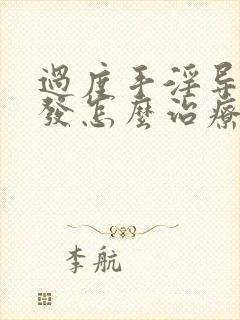 過度手淫
發怎麼治療
李航